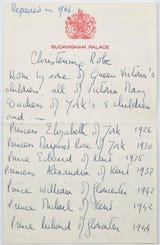 Repaired in 1946
BUCKINGHAM PALACE
Christening Robe
Worn by some of Queen Victoria's
children, all of Victoria Mary
Duchess of York's 5 children
and :—
Princess Elizabeth of York 1926
Princess Margaret Rose of York 1930
Prince Edward of Kent 1935
Princess Alexandra of Kent 1937
Prince William of Gloucester 1942
Prince Michael of Kent 1942
Prince Richard of Gloucester 1944